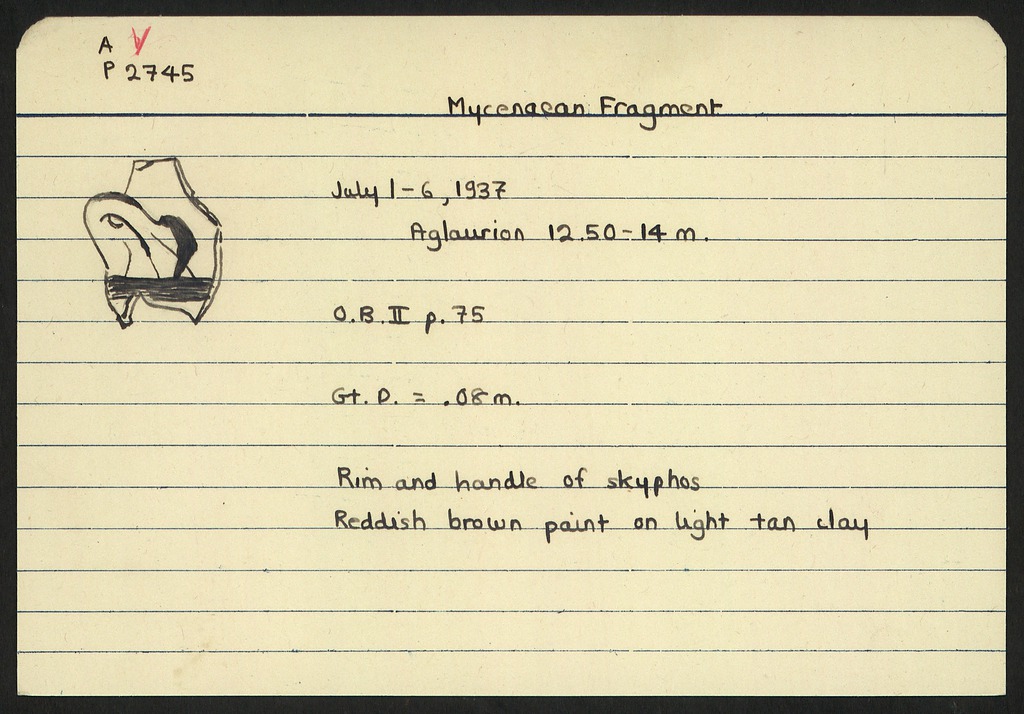 A
P 2745
Mycenaean Fragment
July 1-6, 1937
Aglaurion 12.50-14 m.
O.B. II p. 75
Gt. D. = .08 m.
Rim and handle of skyphos
Reddish brown paint on light tan clay